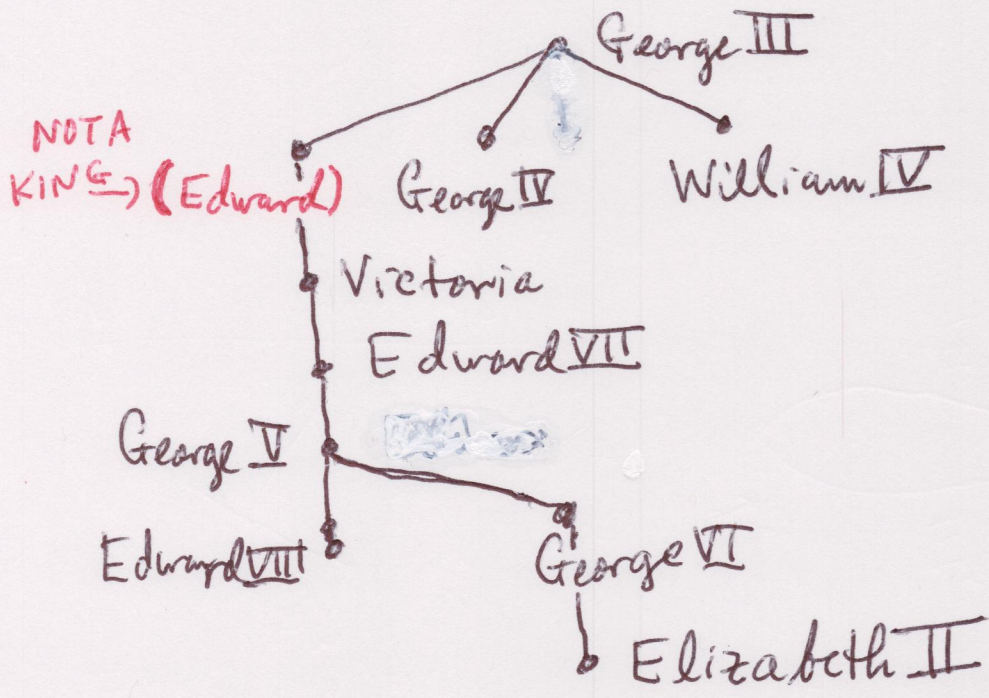 George III
NOT A
KING (Edward)
George IV
William IV
Victoria
Edward VII
George V
Edward VIII
George VI
Elizabeth II